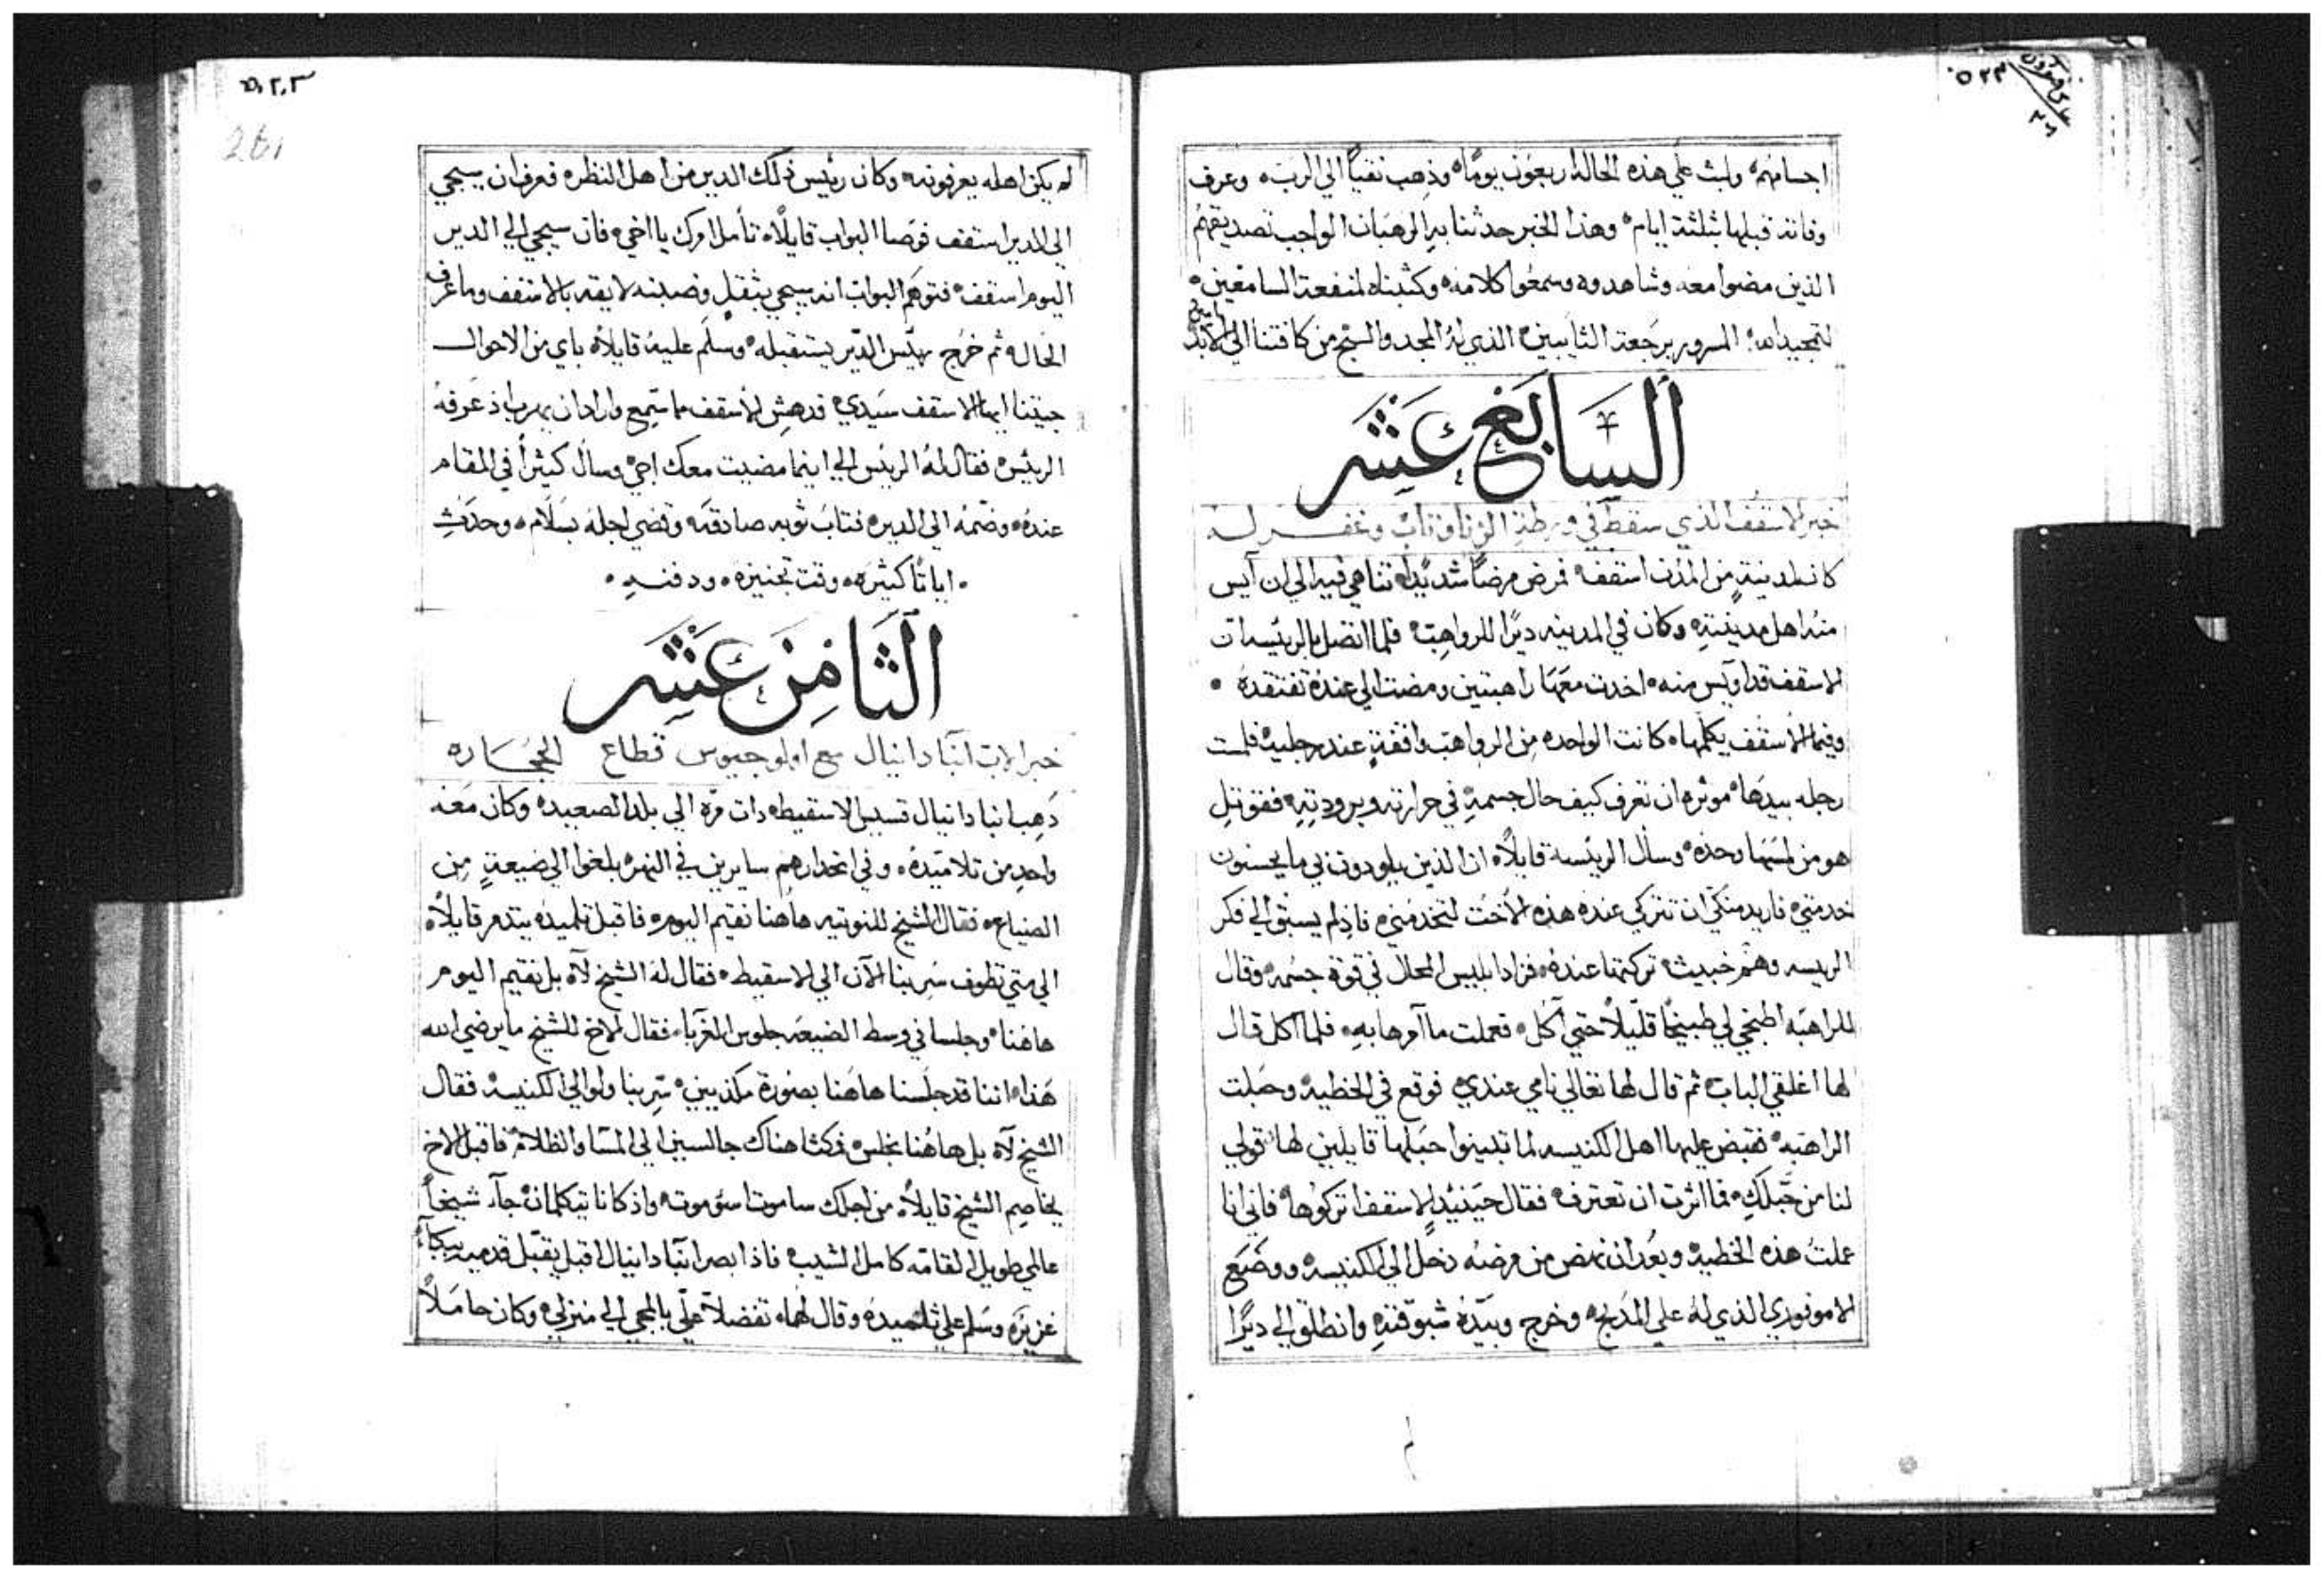 اجسامهم ولبث علي هذه الحاله اربعون يومًا وذهب نقيًا الي الرب وعرف
وفاته قبلها بثلثة ايام وهذا الخبر حدثنا به الرهبان الواجب تصديقهم
الذين مضوا معه وشاهدوه وسمعوا كلامه وكتبناه لمنفعة السامعين
لتمجيد الله المسرور برجعة التايبين الذي له المجد والسبح من كافتنا الي الابد
امين
السابع عشر
خبر الاسقف الذي سقط في ورطة الزنا وتاب وغفر له
كان لمدينةٍ من المدن اسقف فمرض مرضًا شديدًا تناهي فيه الي ان آيس
منه اهل مدينته وكان في المدينه ديرًا للرواهب فلما اتصل بالرئيسه ان
الاسقف قد اويس منه اخدت معها راهبتين ومضت الي عنده تفتقده
وفيما الاسقف يكلمها كانت الواحده من الرواهب واقفةٍ عند رجليه فلمست
رجله بيدها موثره ان تعرف كيف حال جسمهِ في حرارته وبرودتهِ فقوتل
هو من لمسها وحده وسأل الريسه قايلاً ان الذين يلودون بي ما يحسنون
خدمتي فاريد منكي ان تتركي عنده هذه الأخت لتخدمني فاذ لم يسبق الي فكر
الريسه وهم خبيث تركتها عنده فزاد ابليس المحال في قوة جسمه وقال
للراهبه اطبخي لي طبيخًا قليلاً حتي آكل فعملت ما آمرها به فلما اكل قال
لها اغلقي الباب ثم قال لها تعالي نامي عندي فوقع في الخطيه وحبلت
الراهبه فقبض عليها اهل الكنيسه لما تبينوا حبلها قايلين لها قولي
لنا من حبلكِ فما اثرت ان تعترف فقال حينيدٍ الاسقف اتركوها فاني انا
عملت هذه الخطيه وبعد ان نهض من مرضه دخل الي الكنيسه ووضع
الاموفوري الذي له علي المدبح وخرج وبيده شبوقته وانطلق الي ديرًا
لم يكن اهله يعرفونه وكان رئيس ذلك الدير من اهل النظر فعرف ان سيجي
الي الدير اسقف فوصا البواب قايلاً تأمل امرك يا اخي فان سيجي الي الدير
اليوم اسقف فتوهم البواب انه سيجي بثقل وضبنه لايقه بالاسقف وما عرف
الحال ثم خرج رييس الدير يستقبله وسلم عليه قايلاً باي من الاحوال
جيتنا ايها الاسقف سيدي فدهش الاسقف مما سمع واراد ان يهرب اذ عرفه
الريئس فقال له الريئس الي اينما مضيت معك اجي وسأل كثيرًا في المقام
عنده وضمه الي الدير فتاب توبه صادقه وقضي اجله بسلام وحدث
اياتًا كثيره وقت تجنيزه ودفنه
الثامن عشر
خبر الاب آنبا دانيال مع اولوجيوس قطاع الحجاره
ذهب انبا دانيال قسيس الاسقيط دات مره الي بلد الصعيد وكان معه
واحدٍ من تلاميده وفي انحدارهم سايرين في النهر بلغوا الي ضيعةٍ من
الضياع فقال الشيخ للنوتيه هاهنا نقيم اليوم فاقبل تلميده يتدمر قايلاً
الي متي نطوف سر بنا الآن الي الاسقيط فقال له الشيخ لآ بل نقيم اليوم
هاهنا وجلسا في وسط الضيعه جلوس الغربا فقال الاخ للشيخ ما يرضي الله
هذا اننا قد جلسنا هاهنا بصورة مكذيين سر بنا ولو الي الكنيسه فقال
الشيخ لآ بل هاهنا نجلس فمكثا هناك جالسين الي المسا والظلام فاقبل الاخ
يخاصم الشيخ قايلاً من اجلك ساموت اسؤ موته واذ كانا يتكلمان جآ شيخًا
عالمي طويل القامه كامل الشيب فاذ ابصر انبا دانيال اقبل يقبل قدميه ببكآ
غزيره وسلم علي تلميده وقال لهما تفضلآ علي بالمجي الي منزلي وكان حاملاً